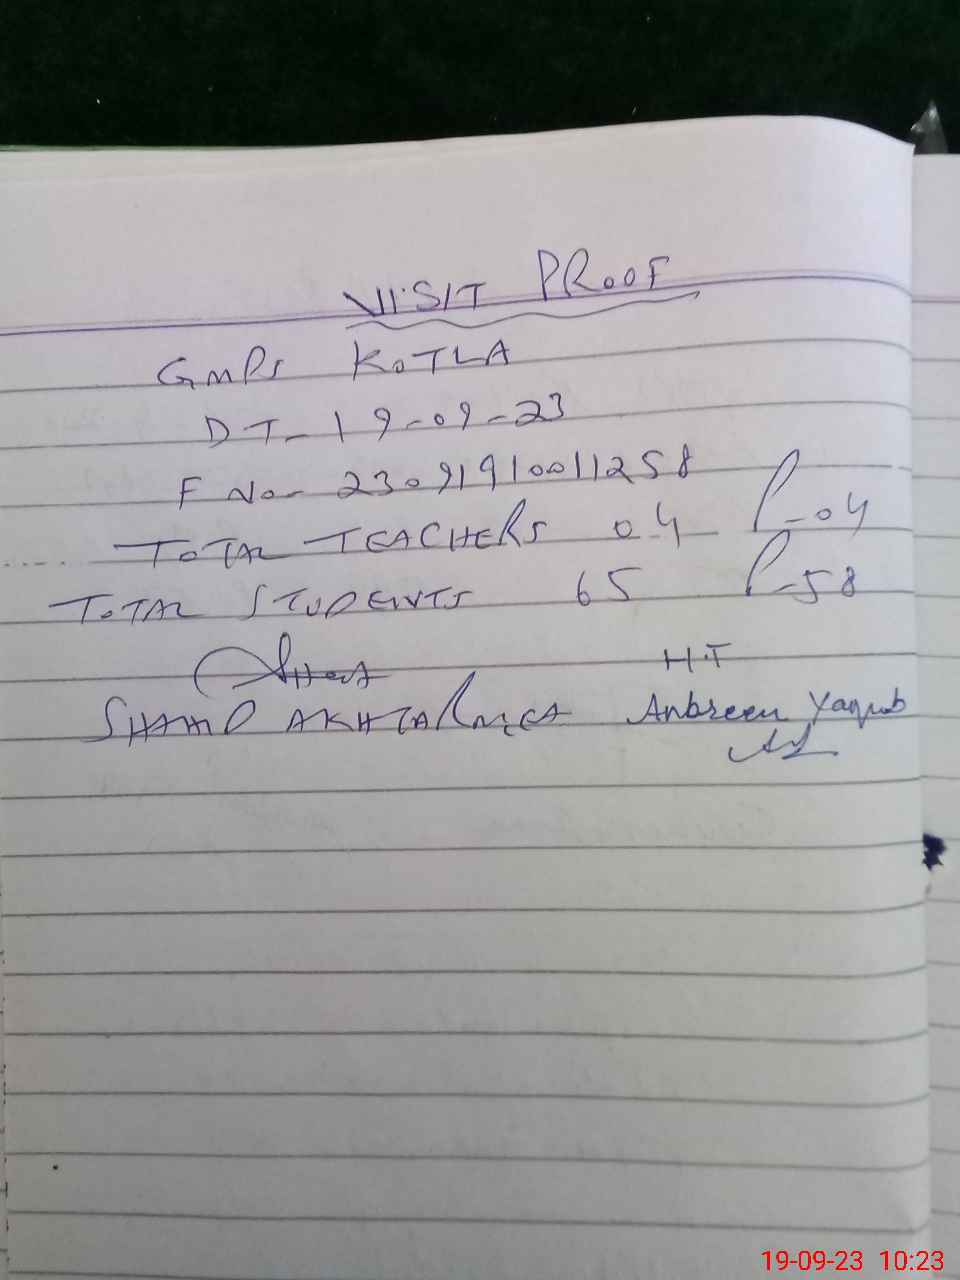 VISIT PROOF
GMPS KOTLA
DT- 19-09-23
F No- 23091910011258
TOTAL TEACHERS 04 P-04
TOTAL STUDENTS 65 P-58
H.T
AKHTAR MEA Anbreen Yaqub
19-09-23 10:23